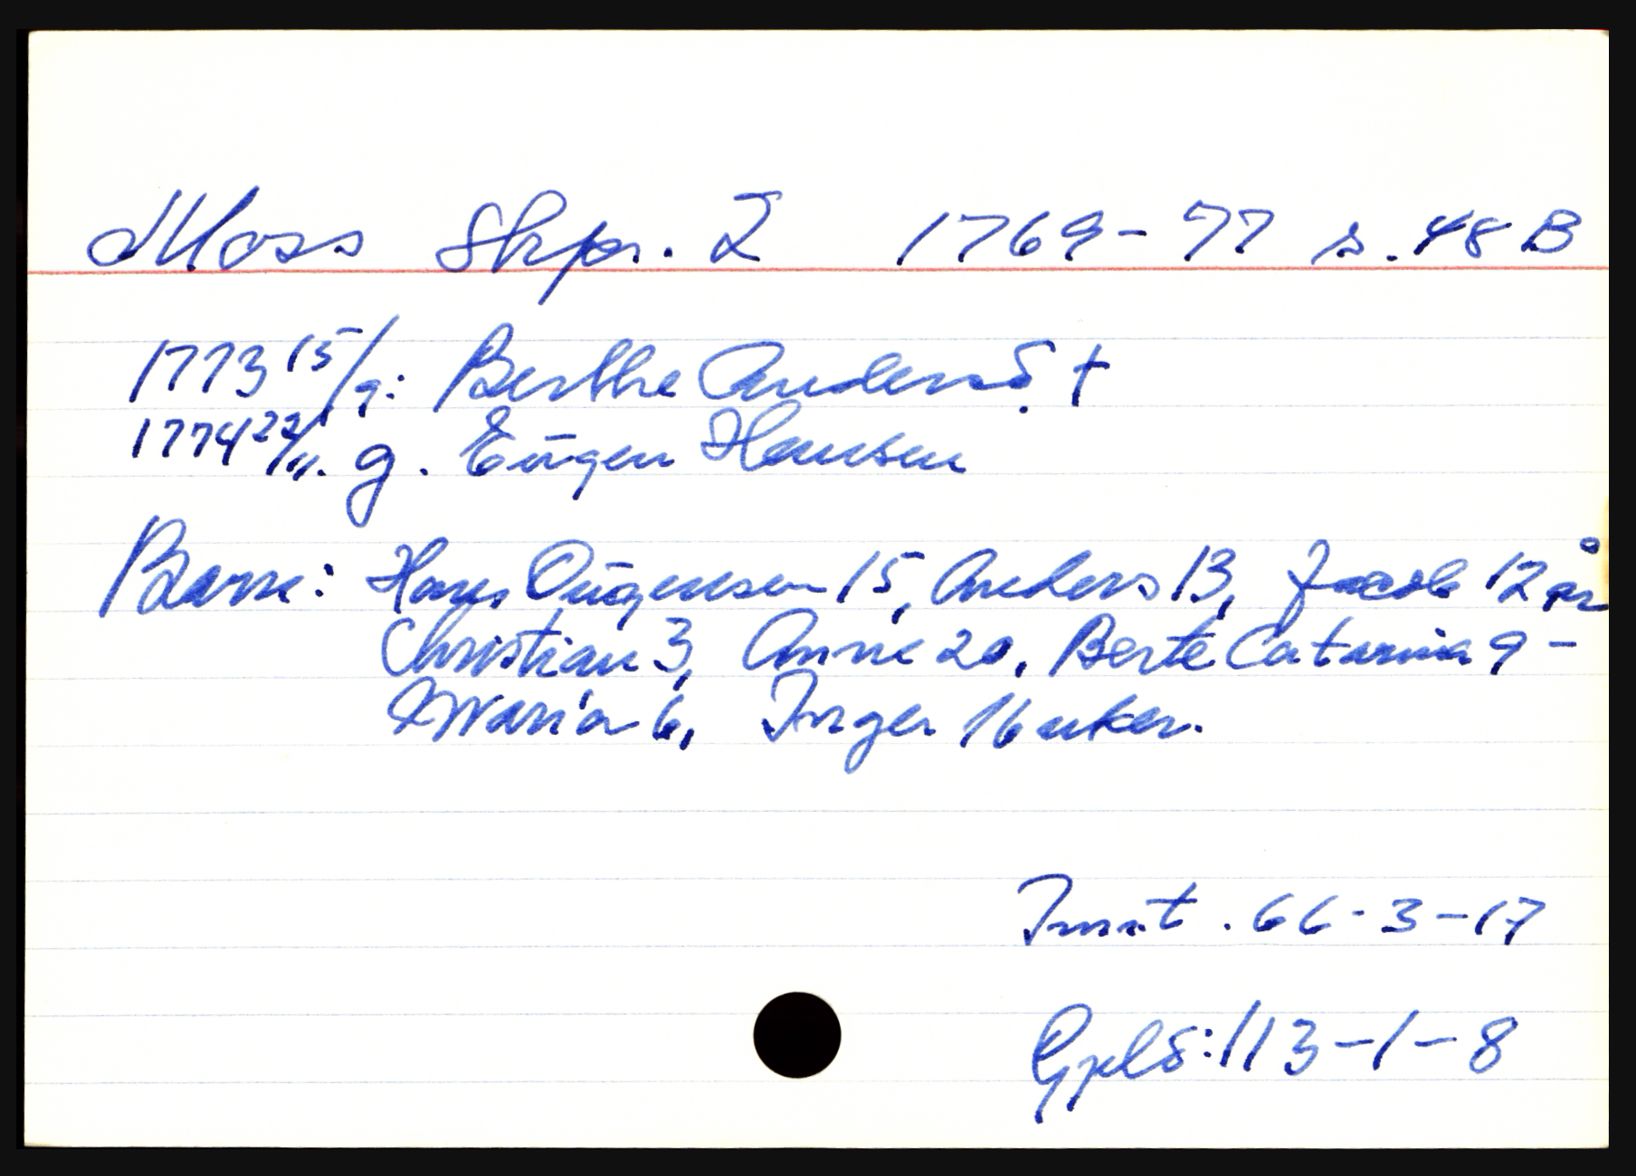 Moss Skpr. 2 1769-77 s. 48 B
1773 15/9: Berthe Andersd. †
1774 22/11. g. Eŭgen Hansen
Barn: Hans Oŭgensen 15, Anders 13, Jacob 12 år
Christian 3, Anne 20, Berte Catarina 9 -
Maria 6, Inger 16 uker.
Innt. 66-3-17
Gjeld: 113-1-8